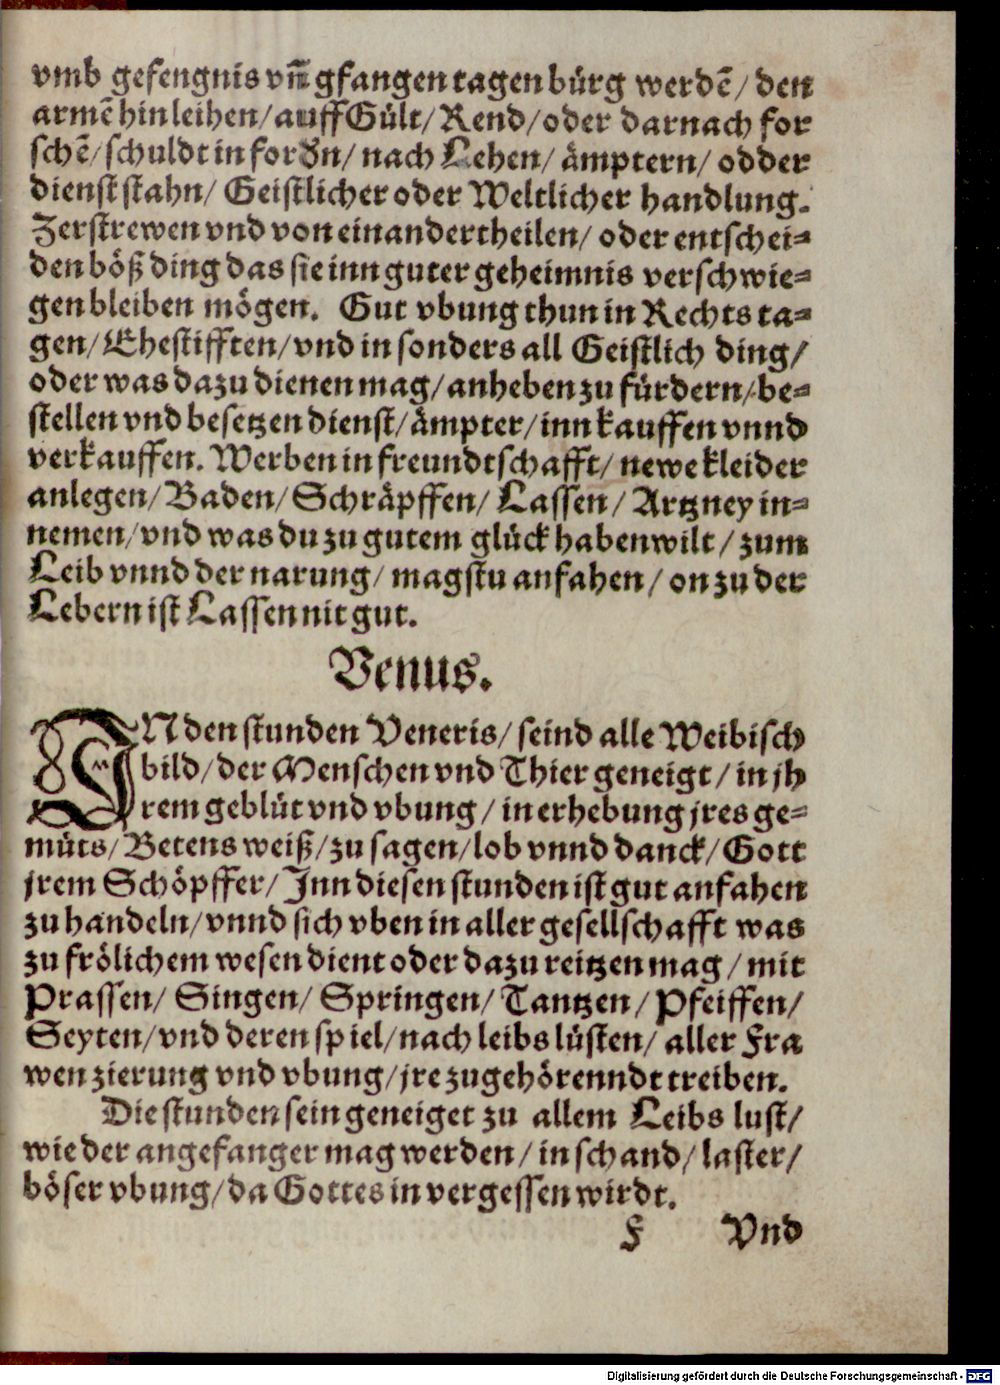 vmb gefengnis vñ gfangen tagen bürg werdẽ/ den
armẽ hinleihen/ auff Gült/ Rend/ oder darnach for
schẽ/ schuldt in fordn/ nach Lehen/ ämptern/ odder
dienst stahn/ Geistlicher oder Weltlicher handlung.
Zerstrewen vnd von einander theilen/ oder entschei⸗
den böß ding das sie inn guter geheimnis verschwie⸗
gen bleiben mögen. Gut vbung thun in Rechts ta⸗
gen/ Ehestifften/ vnd in sonders all Geistlich ding/
oder was dazu dienen mag/ anheben zu fürdern/ be⸗
stellen vnd besetzen dienst/ ämpter/ inn kauffen vnnd
verkauffen. Werben in freundtschafft/ newe kleider
anlegen/ Baden/ Schräpffen/ Lassen/ Artzney in⸗
nemen/ vnd was du zu gutem glück haben wilt/ zum
Leib vnnd der narung/ magstu anfahen/ on zu der
Lebern ist Lassen nit gut.
Venus.
IN den stunden Veneris/ seind alle Weibisch
bild/ der Menschen vnd Thier geneigt/ in jh
rem geblüt vnd vbung/ in erhebung jres ge⸗
müts/ Betens weiß/ zu sagen/ lob vnnd danck/ Gott
jrem Schöpffer/ Inn diesen stunden ist gut anfahen
zu handeln/ vnnd sich vben in aller gesellschafft was
zu frölichem wesen dient oder dazu reitzen mag/ mit
Prassen/ Singen/ Springen/ Tantzen/ Pfeiffen/
Seyten/ vnd deren spiel/ nach leibs lüsten/ aller Fra
wen zierung vnd vbung/ jre zugehörenndt treiben.
Die stunden sein geneiget zu allem Leibs lust/
wie der angefanger mag werden/ in schand/ laster/
böser vbung/ da Gottes in vergessen wirdt.
F Vnd
Digitalisierung gefördert durch die Deutsche Forschungsgemeinschaft - DFG